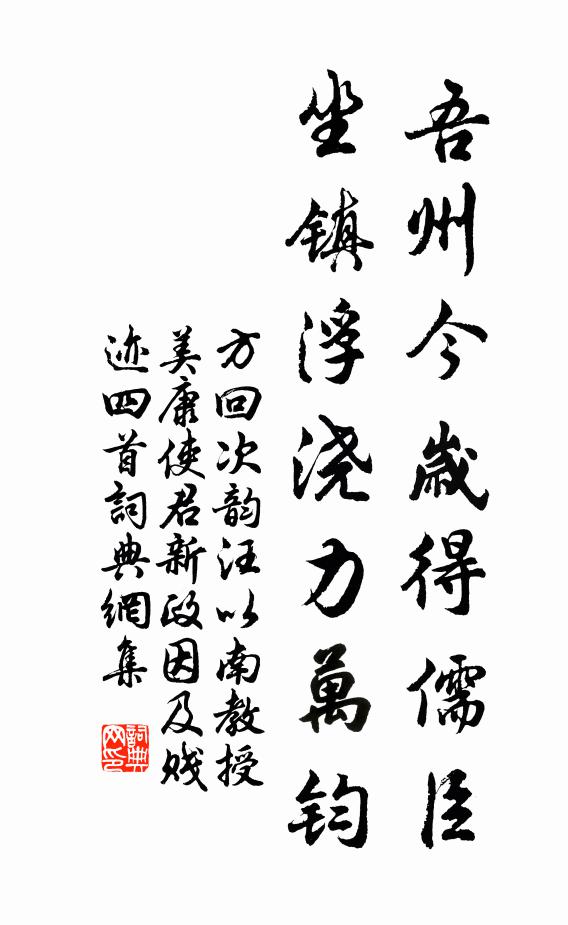 吾州今歲得儒臣
坐镇浮浇力萬钧
方回次韵汪以南教授
美康使君新政因及贱
迹四首詞典網集
詞典网印